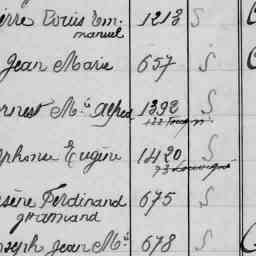 ierre Louis Em- 1213 S
manuel
Jean Marie 657 S
ernest M.ie Alfred 1392 S
phonse Eugène 1420 S
sène Ferdinand 675 S
germand
oseph Jean M.ie 678 S